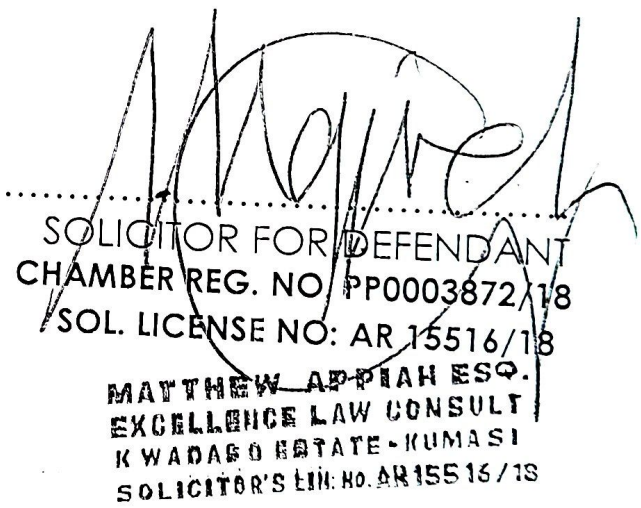 SOLICITOR FOR DEFENDANT
CHAMBER REG. NO. PP0003872/18
SOL. LICENSE NO: AR 15516/18
MATTHEW APPIAH ESQ.
EXCELLENCE LAW CONSULT
KWADASO ESTATE - KUMASI
SOLICITOR'S LIN: NO. AR15516/18